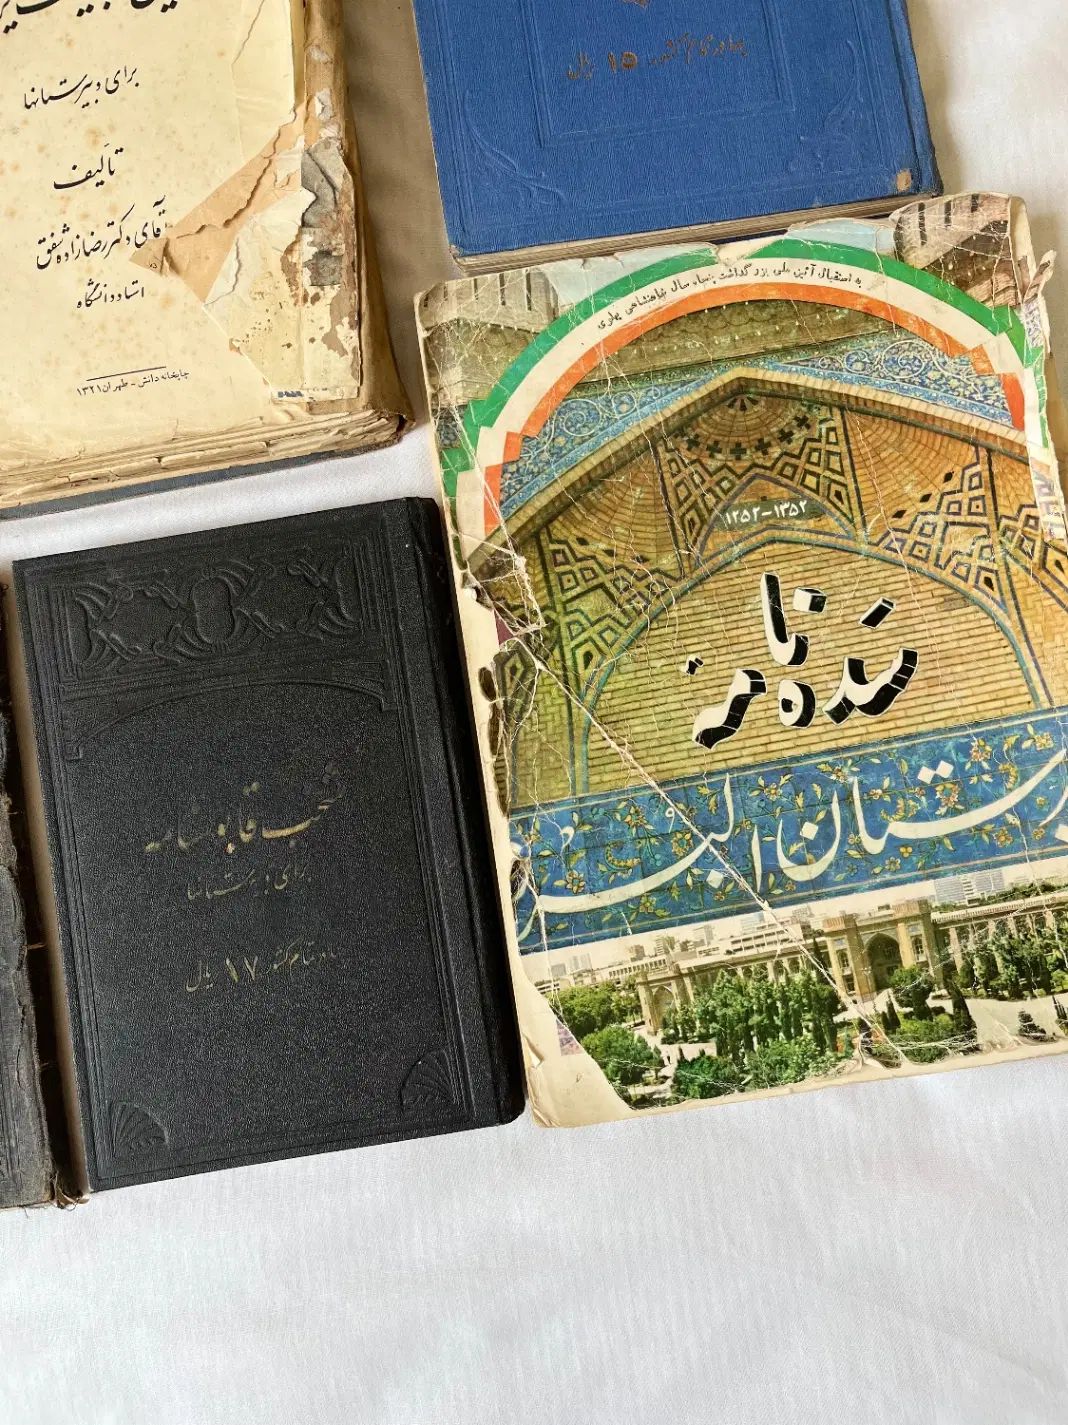 برای دبیرستانها
تألیف
آقای دکتر رضازاده شفق
استاد دانشگاه
چاپخانه دانش - طهران ۱۳۲۱
بها در تمام کشور ۱۵ ریال
به استقبال آئین ملی بزرگداشت پنجاه سال شاهنشاهی پهلوی
۱۲۵۲-۱۳۵۲
سده نامه
دبیرستان البرز
منتخب قابوسنامه
برای دبیرستانها
بها در تمام کشور ۱۷ ریال